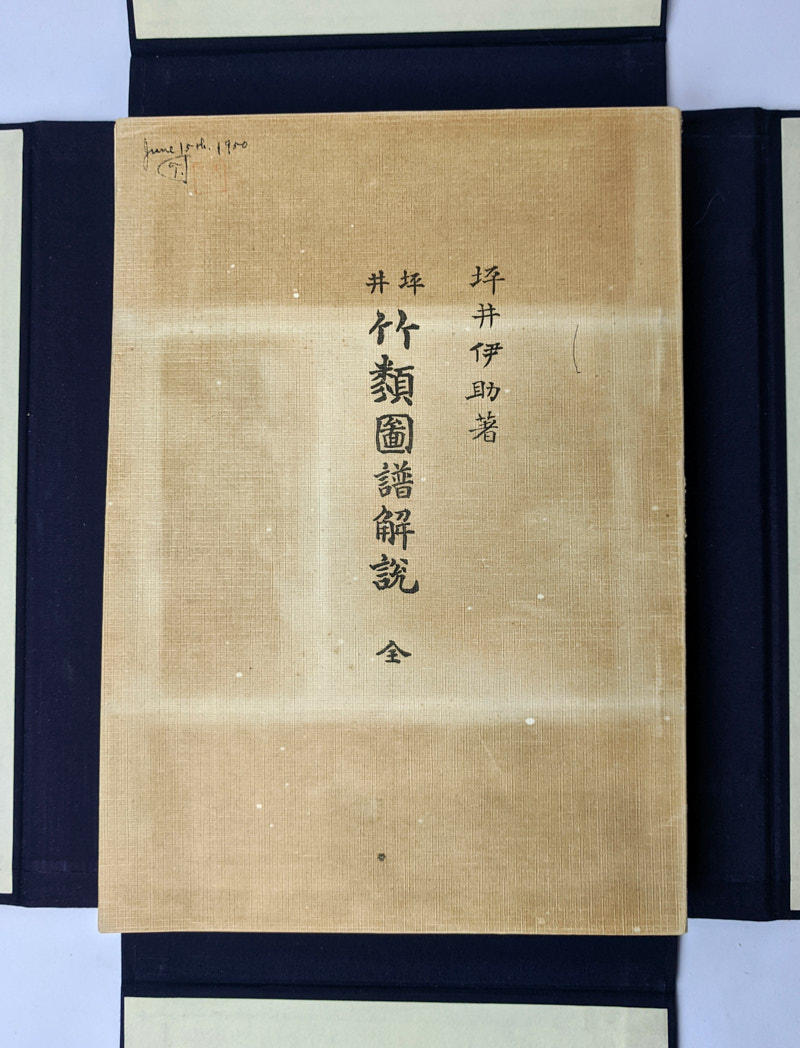 June 15th. 1950
坪井伊助著
坪井
竹類圖譜解説
全